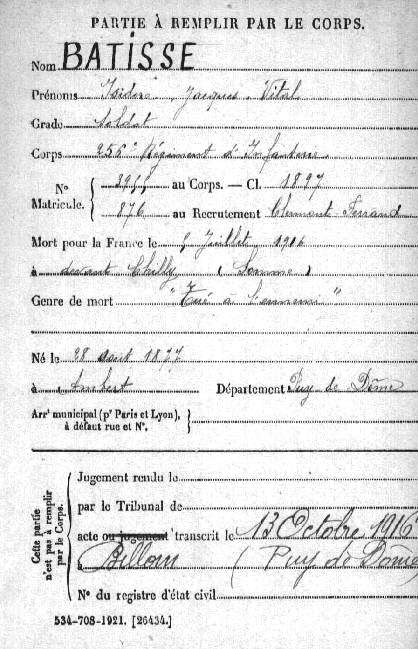 PARTIE À REMPLIR PAR LE CORPS.
Nom BATISSE
Prénoms Isidore Jacques Vital
Grade Soldat
Corps 256e Régiment d'Infanterie
No Matricule. au Corps. — Cl. 1897
876 au Recrutement Clermont Ferrand
Mort pour la France le Juillet 1916
à devant Chilly (Somme)
Genre de mort "Tué à l'ennemi"
Né le 28 août 1877
à Ambert Département Puy de Dôme
Arrt municipal (pr Paris et Lyon), à défaut rue et No.
Cette partie n'est pas à remplir par le Corps.
Jugement rendu le
par le Tribunal de
acte ou jugement transcrit le 13 Octobre 1916
à Billom (Puy de Dome
No du registre d'état civil
534-708-1921. [26434.]